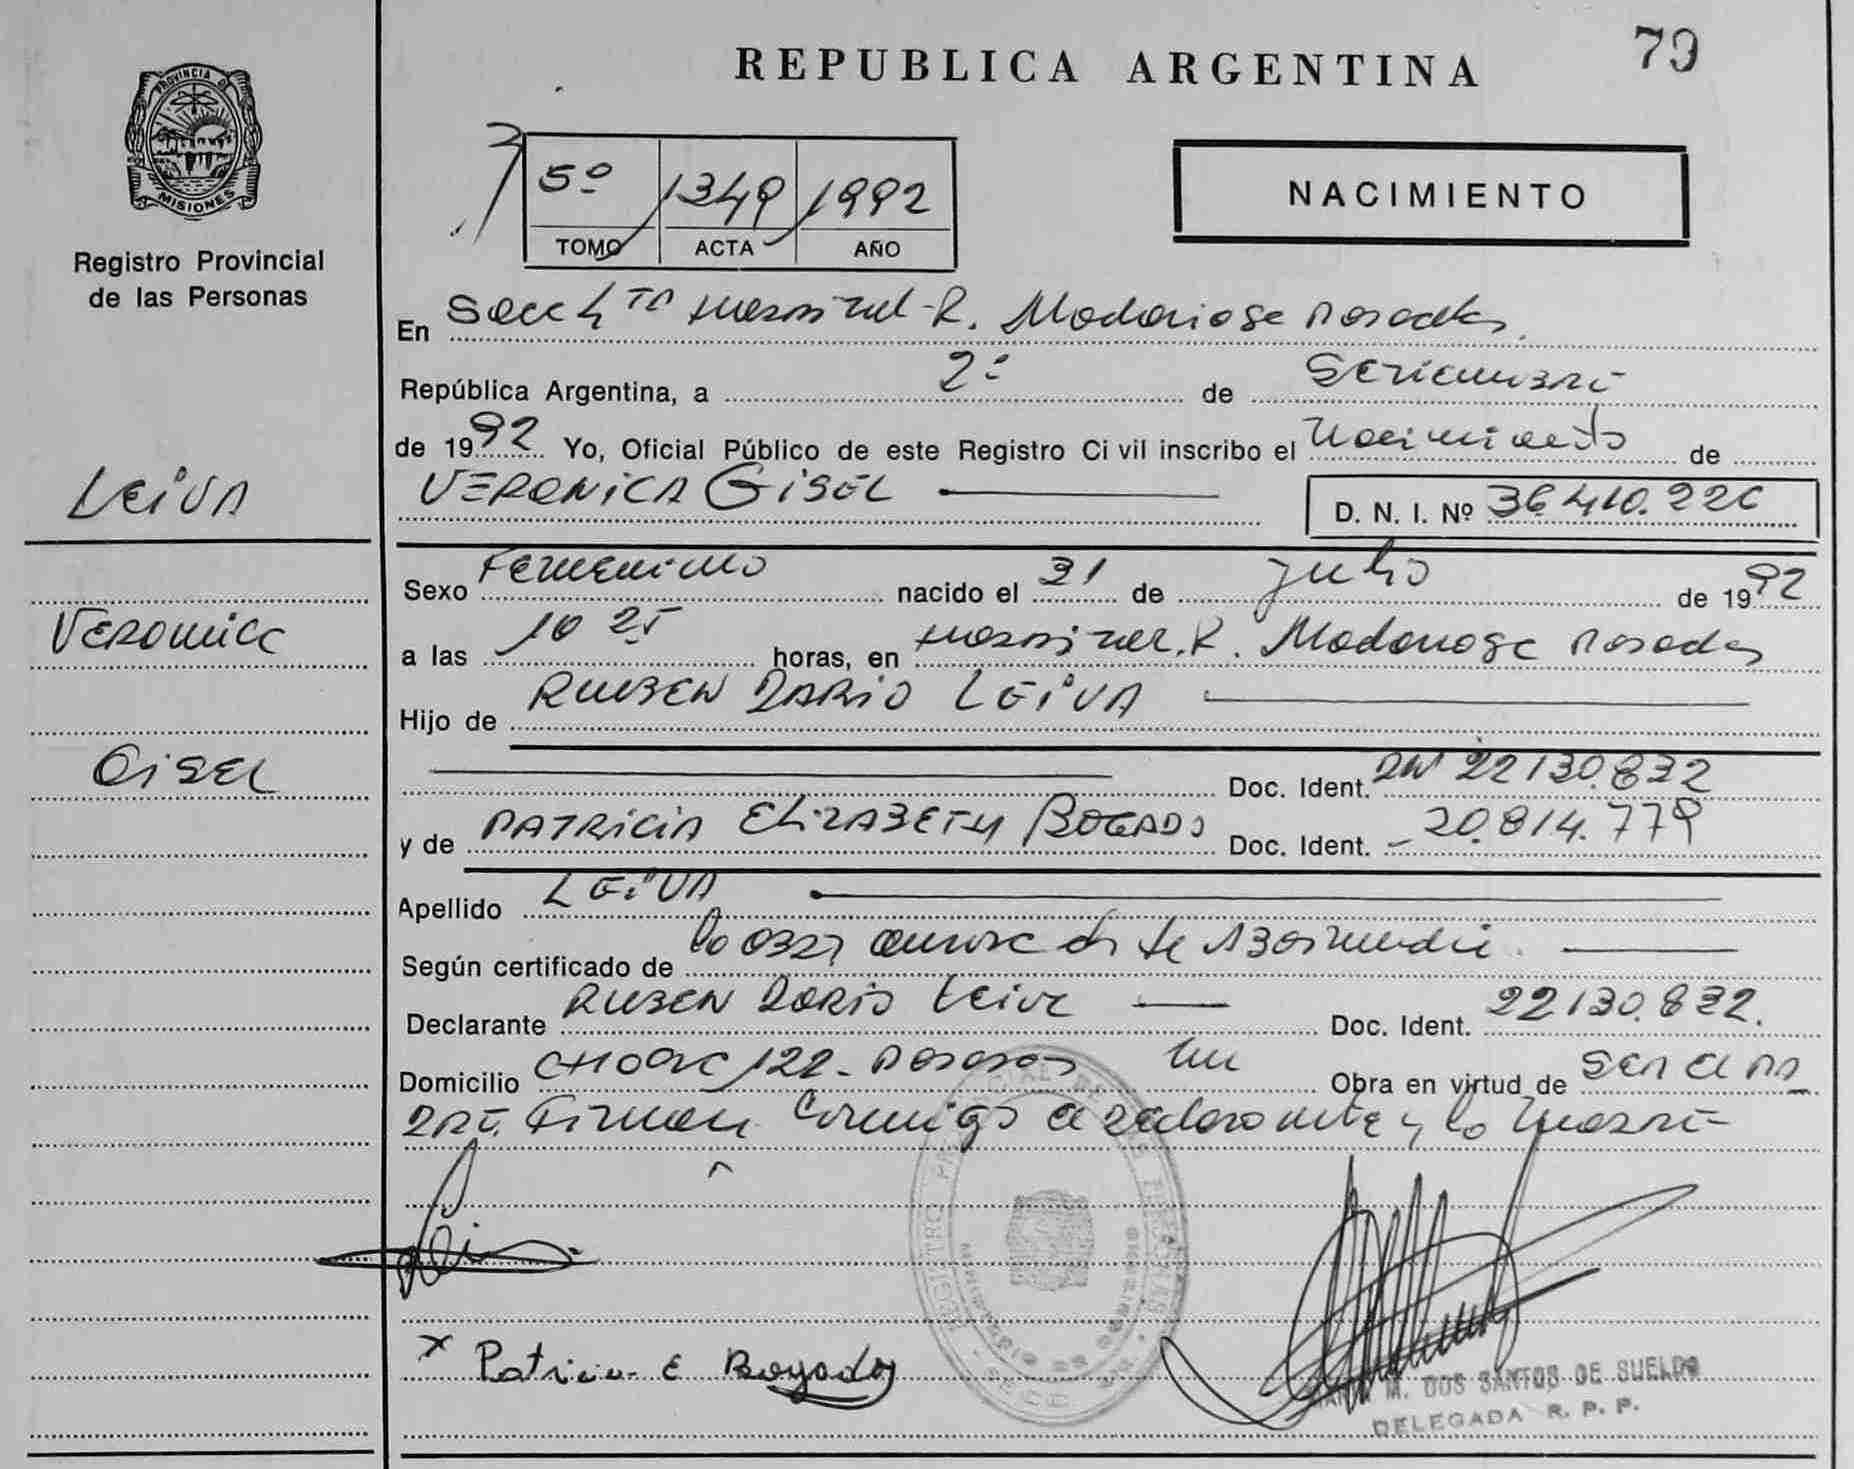 79
REPUBLICA ARGENTINA
PROVINCIA DE MISIONES
Registro Provincial
de las Personas
5º 1349 1992
TOMO ACTA AÑO
NACIMIENTO
En Secc 4 TA Hospital R. Madariaga Posadas
República Argentina, a 2 de Setiembre
de 1992 Yo, Oficial Público de este Registro Civil inscribo el Nacimiento de
LEIVA
VERONICA GISEL
D. N. I. Nº 36.410.226
Sexo Femenino nacido el 31 de Julio de 1992
Veronica
a las 10 25 horas, en Hospital R. Madariaga Posadas
Hijo de RUBEN DARIO LEIVA
Gisel
Doc. Ident. DNI 22130.832
y de PATRICIA ELIZABETH BOGADO Doc. Ident. 20.814.779
Apellido LEIVA
Según certificado de la
Declarante RUBEN DARIO Leiva Doc. Ident. 22130.832.
Domicilio 122 - Posadas Obra en virtud de ser el pa
dre. Firman Conmigo el declarante y la madre
Patricia E Bogado
M. DOS SANTOS DE SUELDO
DELEGADA R. P. P.